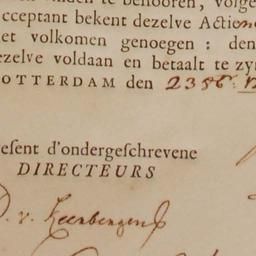 vinden te behooren, volge
cceptant bekent dezelve Action
et volkomen genoegen : den
ezelve voldaan en betaalt te zy
OTTERDAM den
eſent d'ondergeſchrevene
DIRECTEURS
D. v.